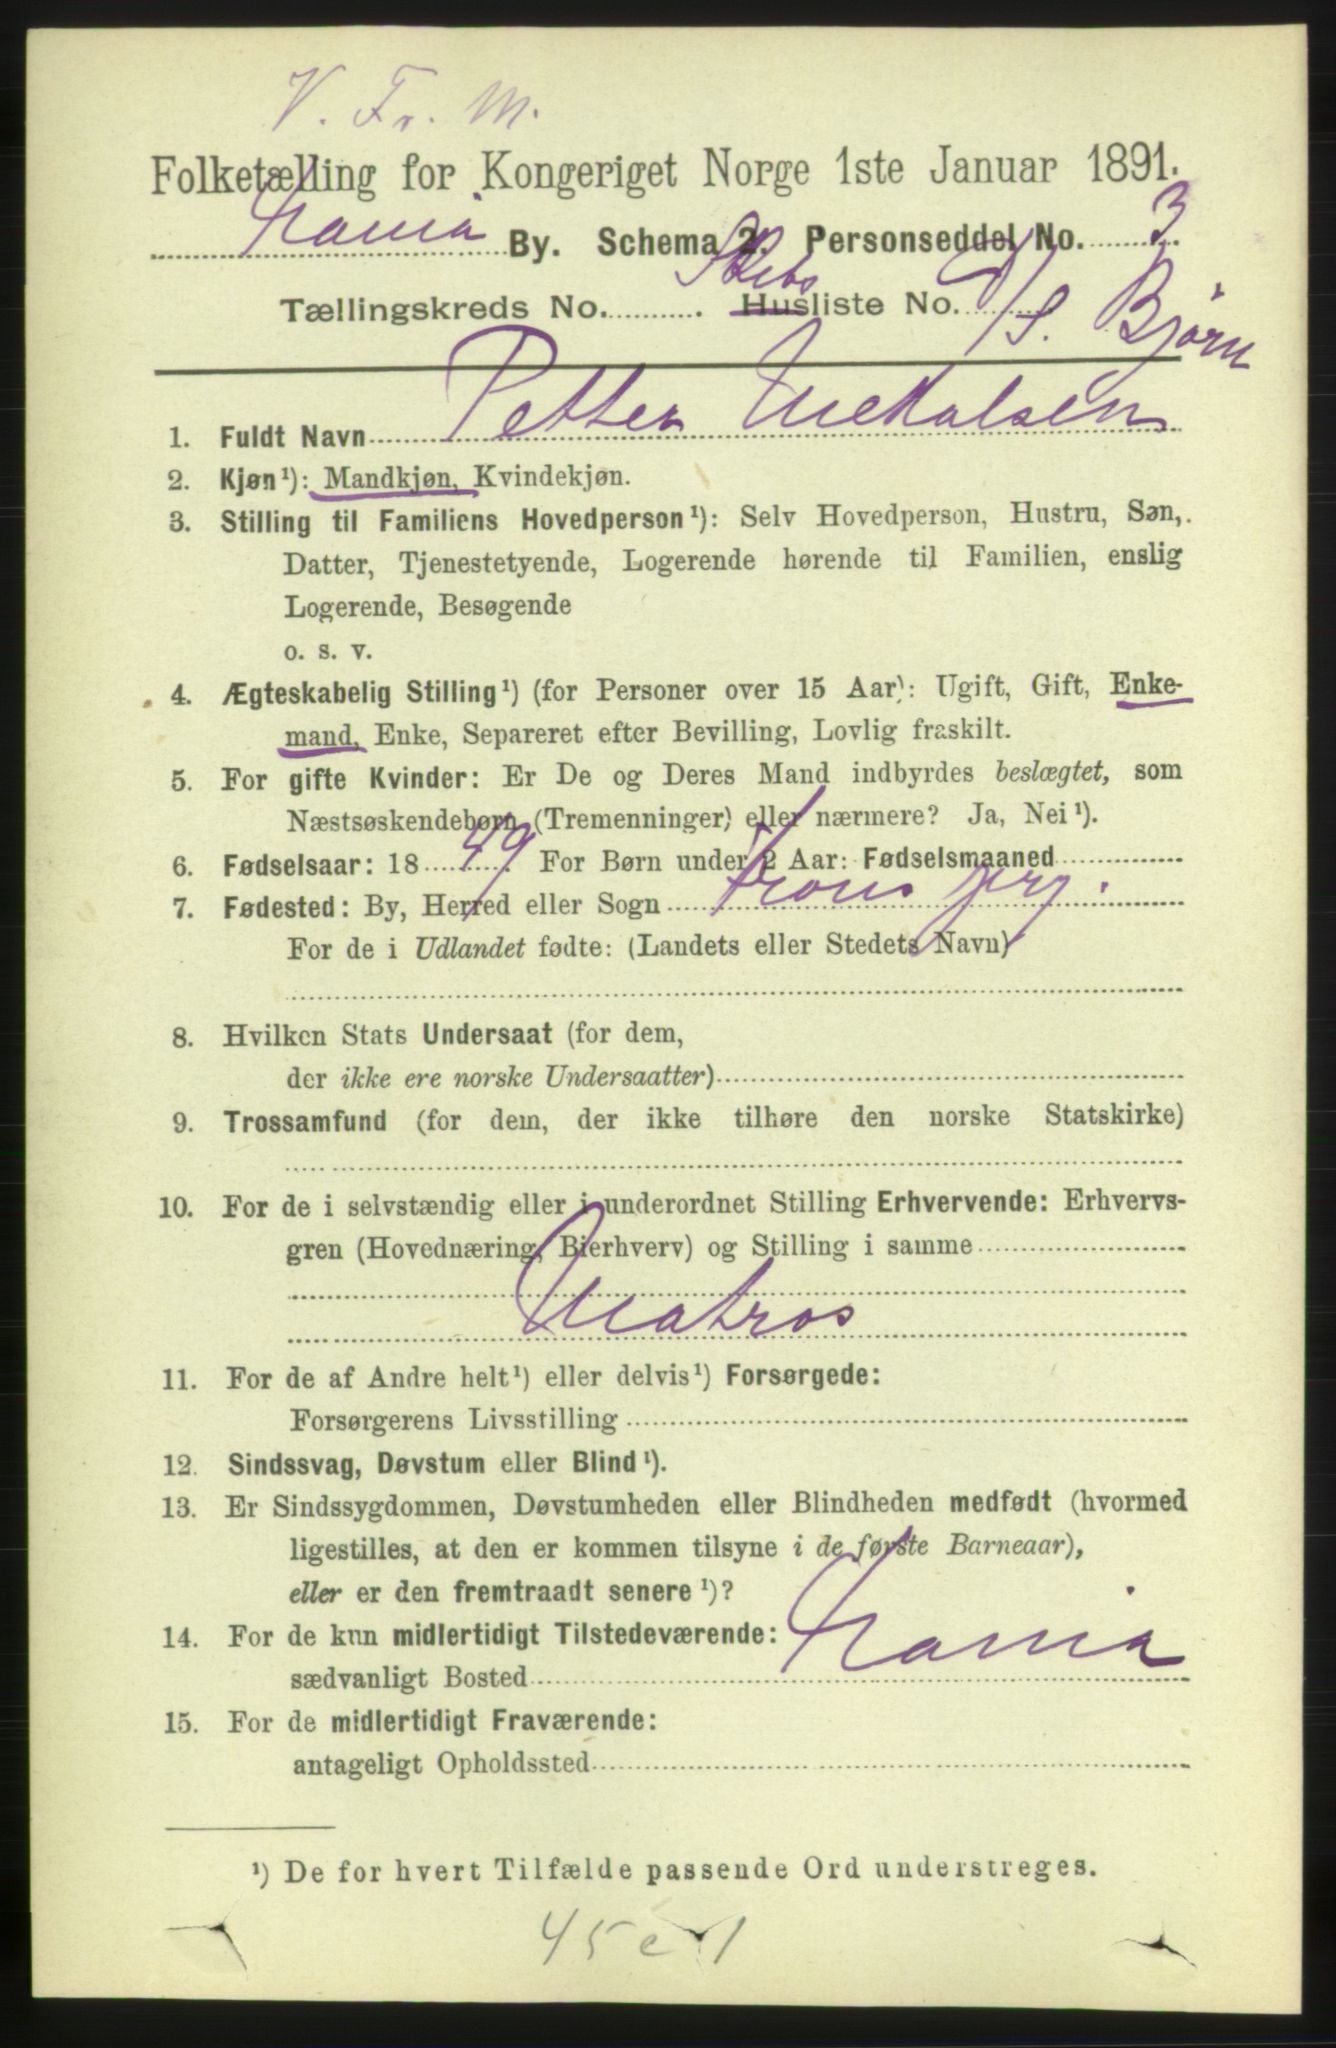 V. Fr. M.
Folketælling for Kongeriget Norge 1ste Januar 1891.
By. Schema 2. Personseddel No. 3
Tællingskreds No. Skibs Husliste No. D/S. Bjørn
1. Fuldt Navn Petter
2. Kjøn¹): Mandkjøn, Kvindekjøn.
3. Stilling til Familiens Hovedperson¹): Selv Hovedperson, Hustru, Søn,
Datter, Tjenestetyende, Logerende hørende til Familien, enslig
Logerende, Besøgende
o. s. v.
4. Ægteskabelig Stilling¹) (for Personer over 15 Aar): Ugift, Gift, Enke-
mand, Enke, Separeret efter Bevilling, Lovlig fraskilt.
5. For gifte Kvinder: Er De og Deres Mand indbyrdes beslægtet, som
Næstsøskendebørn (Tremenninger) eller nærmere? Ja, Nei¹).
6. Fødselsaar: 1849. For Børn under 2 Aar: Fødselsmaaned
7. Fødested: By, Herred eller Sogn
For de i Udlandet fødte: (Landets eller Stedets Navn)
8. Hvilken Stats Undersaat (for dem,
der ikke ere norske Undersaatter)
9. Trossamfund (for dem, der ikke tilhøre den norske Statskirke)
10. For de i selvstændig eller i underordnet Stilling Erhvervende: Erhvervs-
gren (Hovednæring, Bierhverv) og Stilling i samme
Matros
11. For de af Andre helt¹) eller delvis¹) Forsørgede:
Forsørgerens Livsstilling
12. Sindssvag, Døvstum eller Blind¹).
13. Er Sindssygdommen, Døvstumheden eller Blindheden medfødt (hvormed
ligestilles, at den er kommen tilsyne i de første Barneaar),
eller er den fremtraadt senere¹)?
14. For de kun midlertidigt Tilstedeværende:
sædvanligt Bosted
15. For de midlertidigt Fraværende:
antageligt Opholdssted
¹) De for hvert Tilfælde passende Ord understreges.